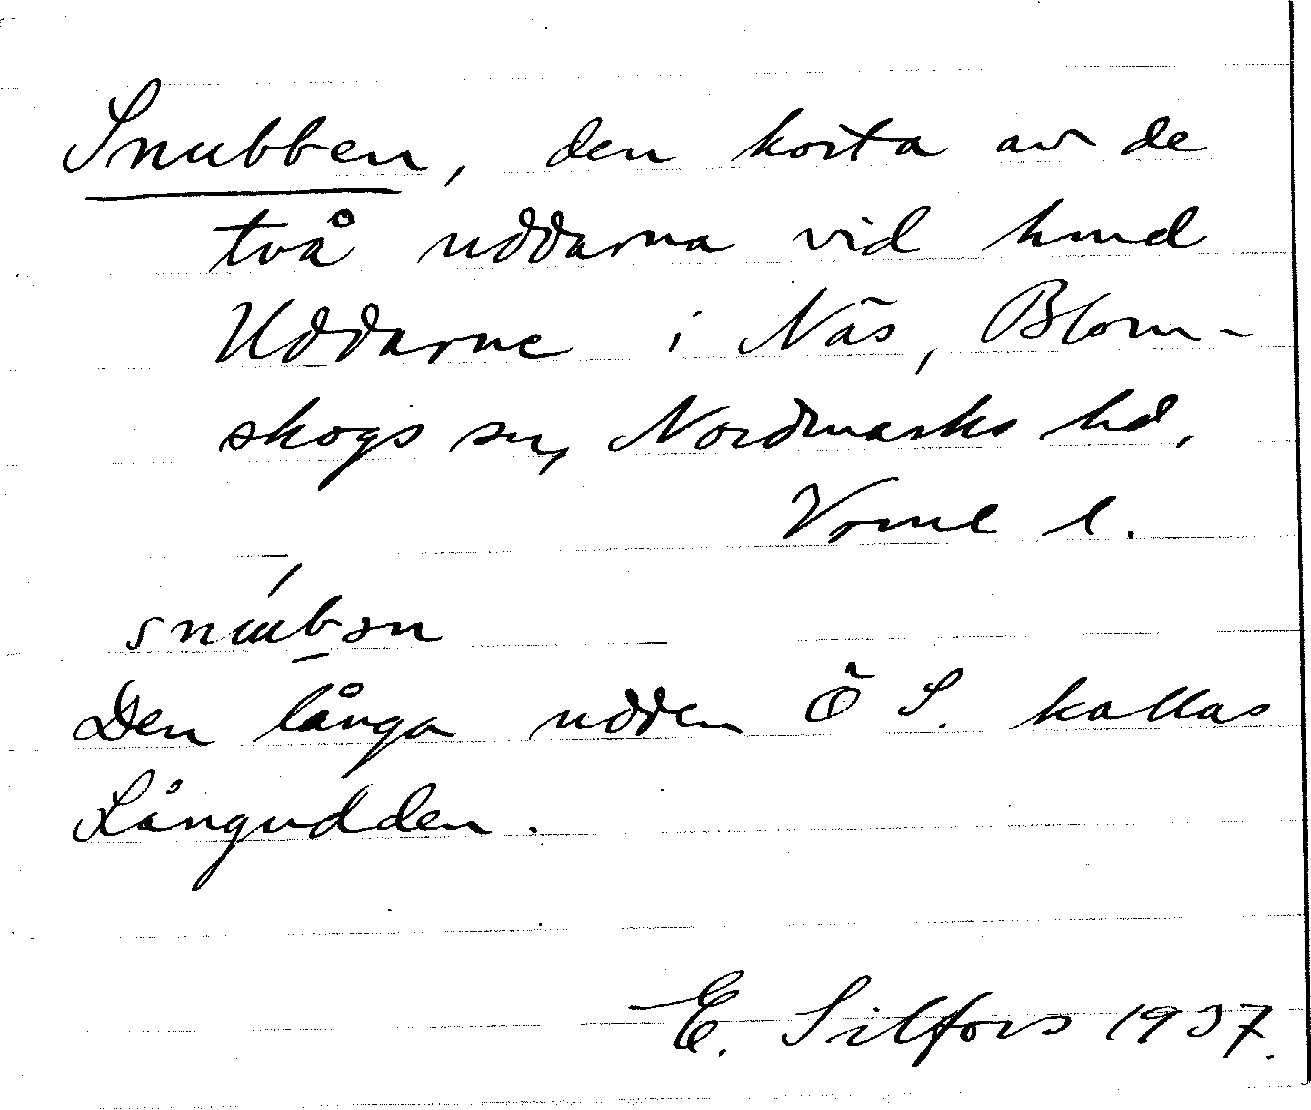 Snubben, den korta av de
två uddarna vid hmd
Uddarne i Näs, Blom-
skogs sn, Nordmarks hd,
Vrml l.
Den långa udden Ö S. kallas
Långudden.
E. Silfors 1937.